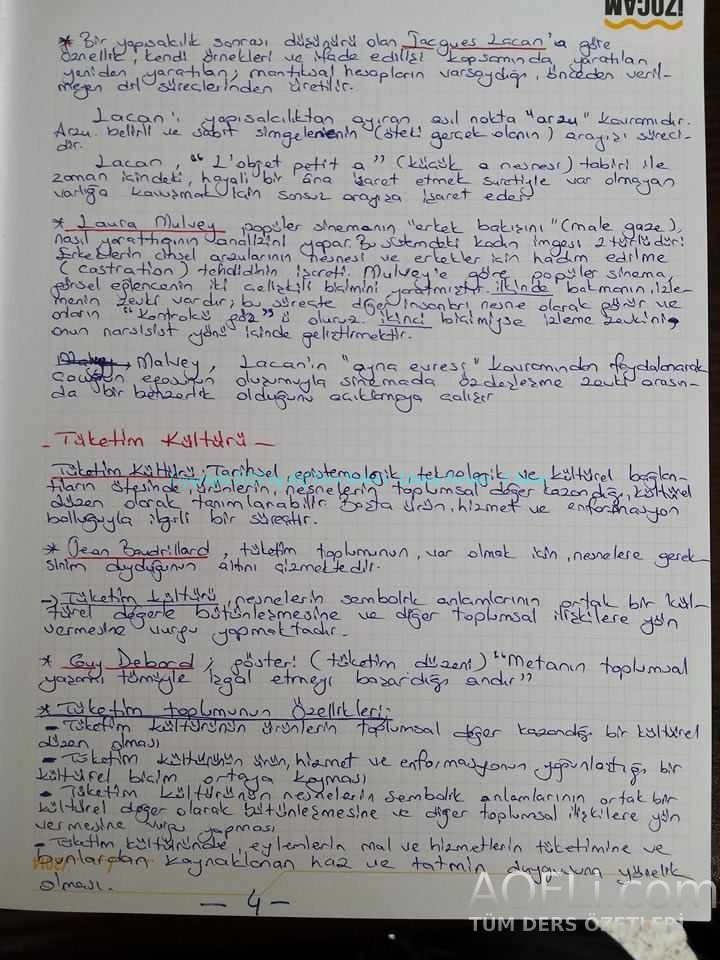 İZOCAM
* Bir yapısalcılık sonrası düşünürü olan Jacques Lacan'a göre
öznellik, kendi örnekleri ve ifade edilişi kapsamında yaratılan
yeniden yaratılan, mantıksal hesapların varsaydığı, önceden veril-
meyen dil süreçlerinden üretilir.
Lacan'ı yapısalcılıktan ayıran asıl nokta "arzu" kavramıdır.
Arzu belirli ve sabit simgelenenin (öteki gerçek olanın) arayışı süreci-
dir.
Lacan, "L'objet petit a" (küçük a nesnesi) tabiri ile
zaman içindeki, hayali bir âna işaret etmek suretiyle var olmayan
varlığa kavuşmak için sonsuz arayışa işaret eder
* Laura Mulvey popüler sinemanın "erkek bakışını" (male gaze),
nasıl yarattığının analizini yapar. Bu sistemdeki kadın imgesi 2 türlüdür:
Erkeklerin cinsel arzularının nesnesi ve erkekler için hadım edilme
(castration) tehdidinin işareti. Mulvey'e göre popüler sinema,
görsel eğlencenin iki çelişkili biçimini yaratmıştır. ilkinde bakmanın, izle-
menin zevki vardır; bu süreçte diğer insanları nesne olarak görür ve
onların "kontrolcü göz"ü oluruz. ikinci biçimiyse izleme zevkini,
onun narsisist yönü içinde geliştirmektir.
Malvey, Lacan'ın "ayna evresi" kavramından faydalanarak
çocuğun egosunun oluşumuyla sinemada özdeşleşme zevki arasın-
da bir benzerlik olduğunu açıklamaya çalışır
- Tüketim Kültürü -
Tüketim Kültürü; Tarihsel epistemolojik teknolojik ve kültürel bağlan-
tıların ötesinde, ürünlerin, nesnelerin toplumsal değer kazandığı, kültürel
düzen olarak tanımlanabilir. Başta ürün, hizmet ve enformasyon
bolluğuyla ilgili bir süreçtir.
* Jean Baudrillard, tüketim toplumunun, var olmak için, nesnelere gerek-
sinim duyduğunun altını çizmektedir.
-> Tüketim kültürü, nesnelerin sembolik anlamlarının ortak bir kül-
türel değerle bütünleşmesine ve diğer toplumsal ilişkilere yön
vermesine vurgu yapmaktadır.
* Guy Debord, gösteri (tüketim düzeni) "Metanın toplumsal
yaşamı tümüyle işgal etmeyi başardığı andır"
* Tüketim toplumunun Özellikleri;
- Tüketim kültürünün ürünlerin toplumsal değer kazandığı bir kültürel
düzen olması
- Tüketim kültürünün ürün, hizmet ve enformasyonun yoğunlaştığı bir
kültürel biçim ortaya koyması
- Tüketim kültürünün nesnelerin sembolik anlamlarının ortak bir
kültürel değer olarak bütünleşmesine ve diğer toplumsal ilişkilere yön
vermesine vurgu yapması
- Tüketim kültüründe, eylemlerin mal ve hizmetlerin tüketimine ve
bunlardan kaynaklanan haz ve tatmin duygusuna yönelik
olması.
- 4 -
AOFLi.com
TÜM DERS ÖZETLERİ